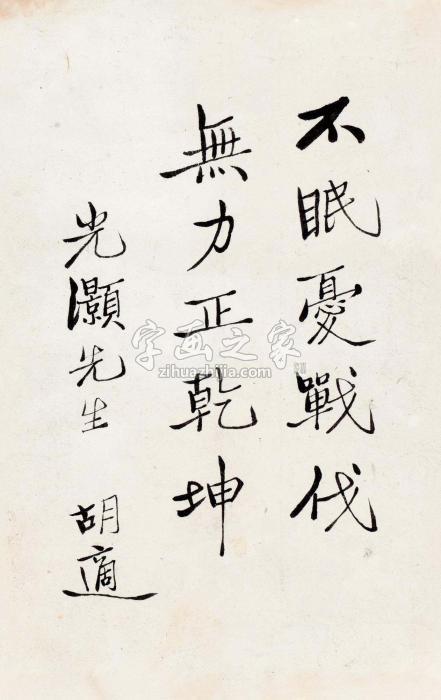 不眠憂戰伐
無力正乾坤
光灝先生
胡適
字画之家
zihuazhijia.com